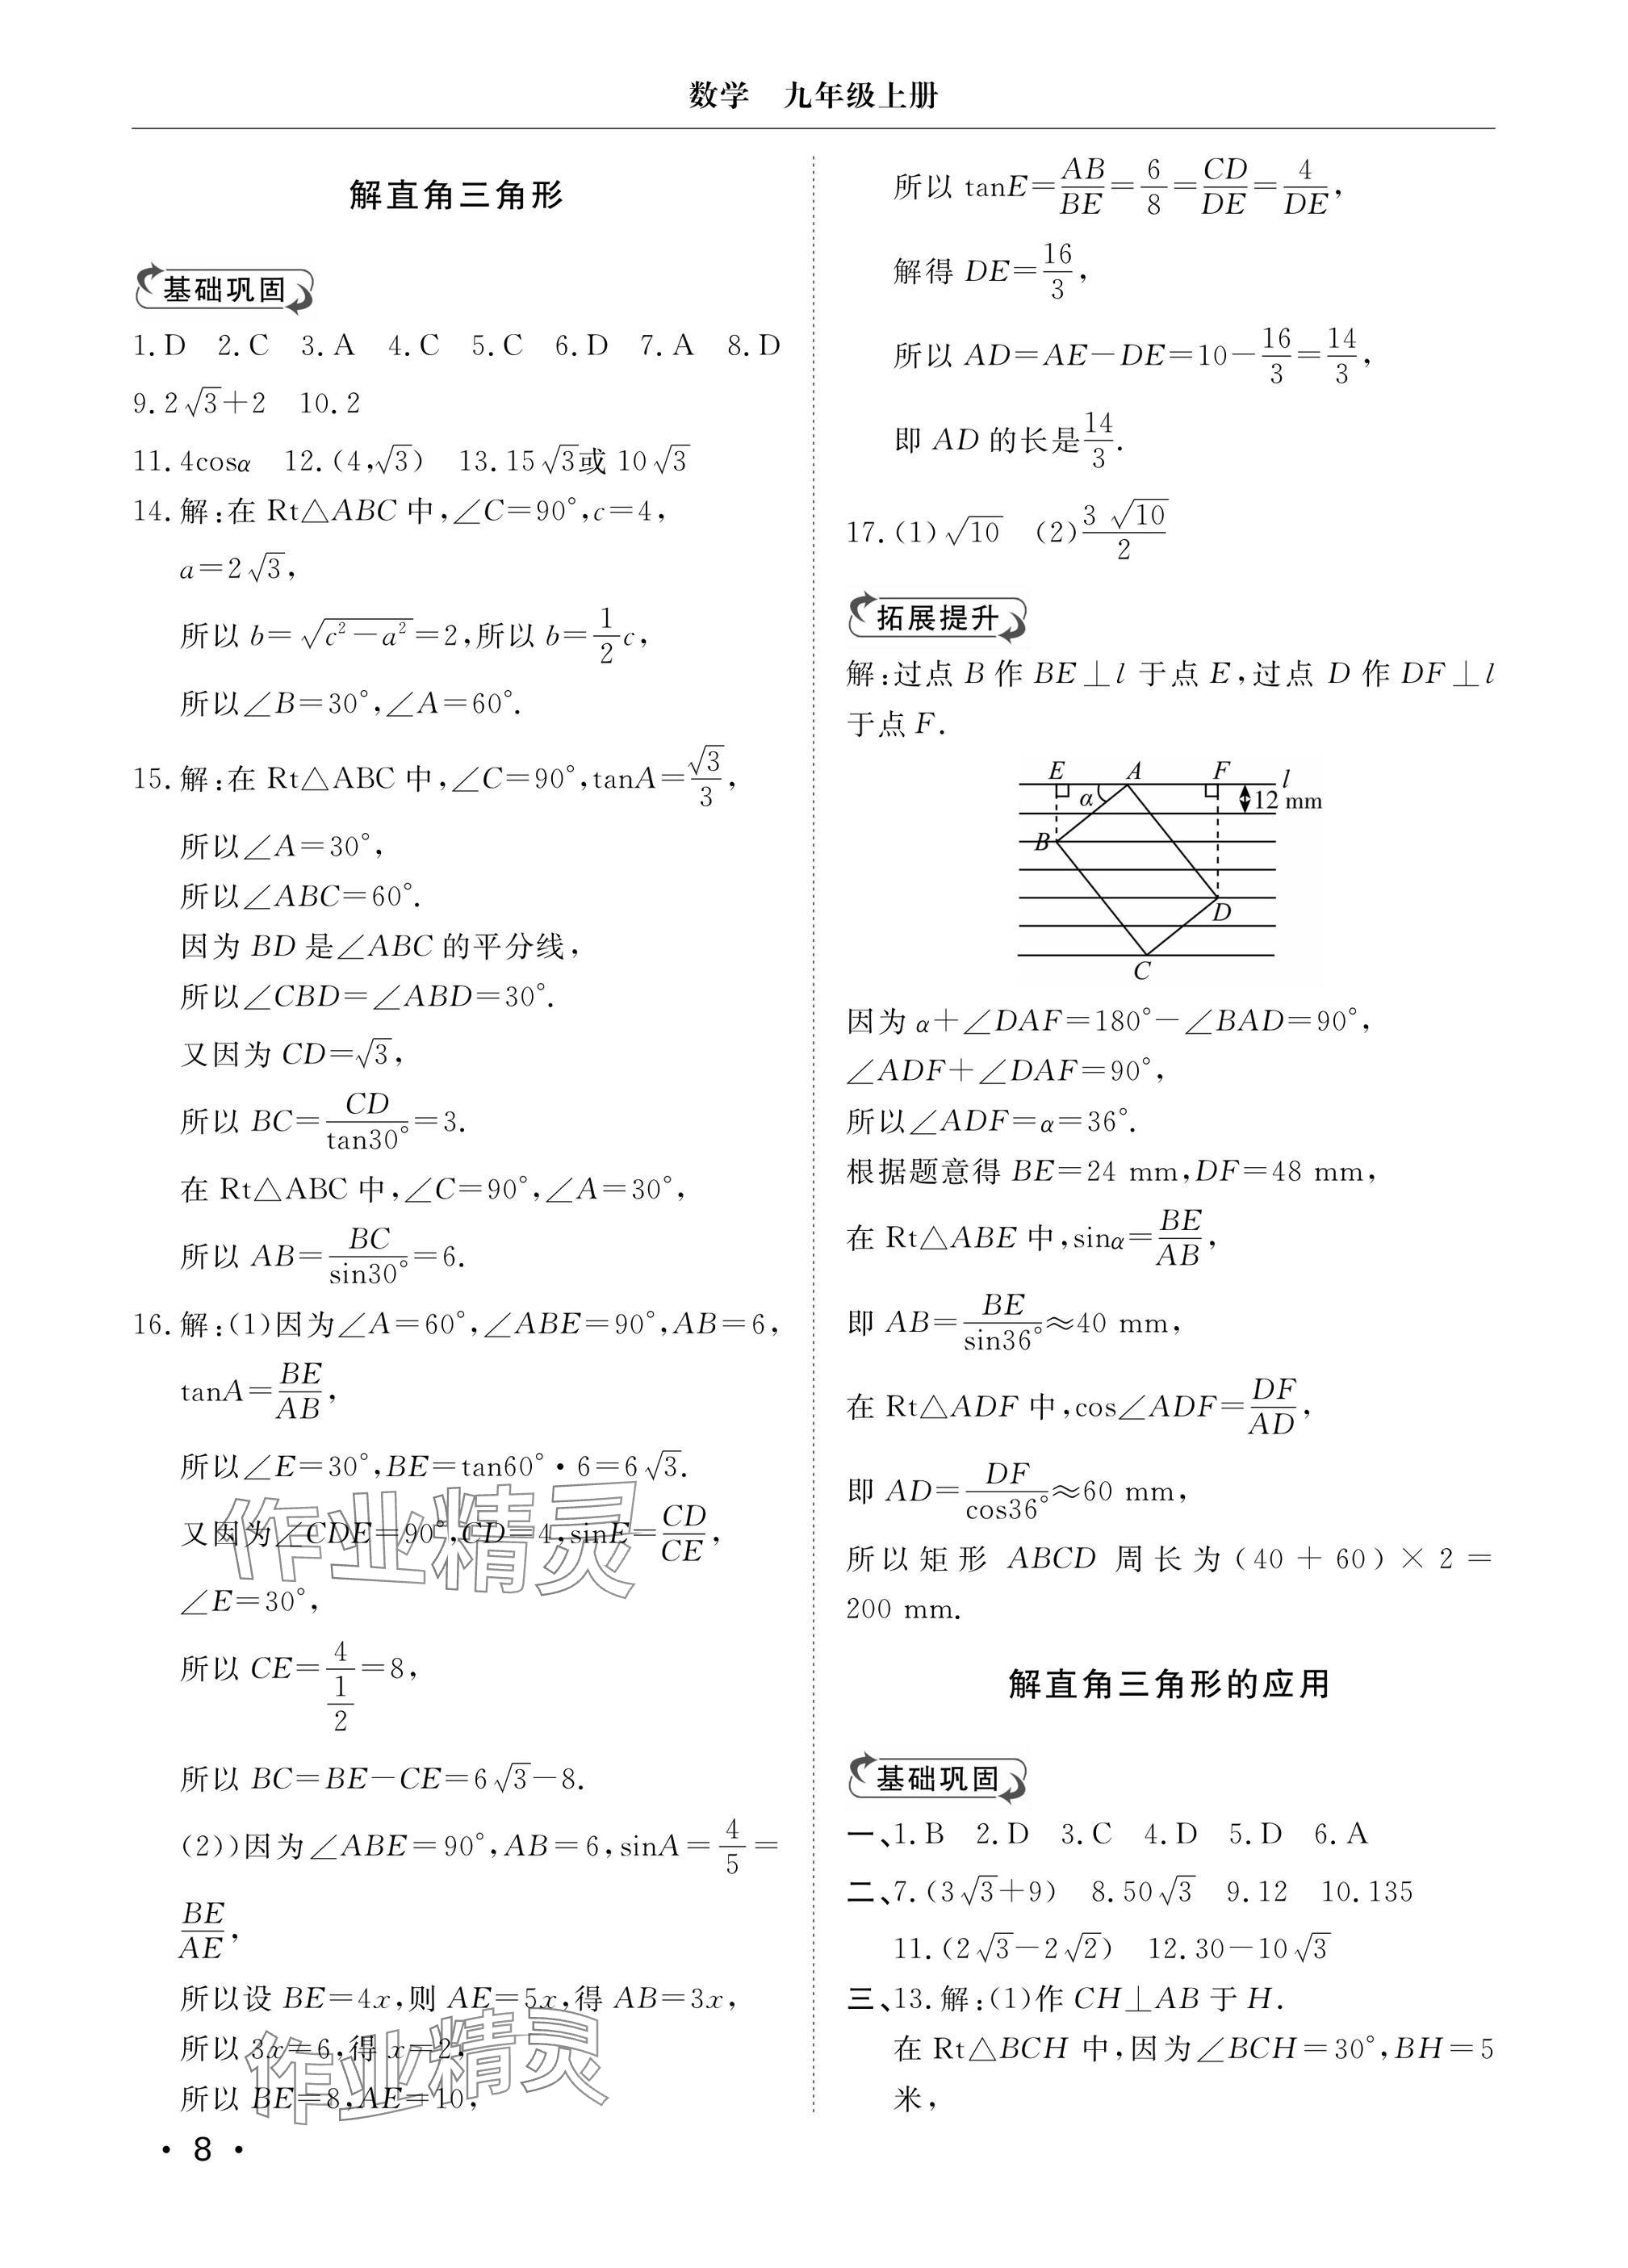 数学 九年级上册
解直角三角形
基础巩固
1.D 2.C 3.A 4.C 5.C 6.D 7.A 8.D
9.2√3+2 10.2
11.4cosα 12.(4,√3) 13.15√3或10√3
14.解:在 Rt△ABC 中,∠C=90°,c=4,
a=2√3,
所以 b=√(c²-a²)=2,所以 b=1/2c,
所以∠B=30°,∠A=60°.
15.解:在 Rt△ABC 中,∠C=90°,tanA=√3/3,
所以∠A=30°,
所以∠ABC=60°.
因为 BD 是∠ABC 的平分线,
所以∠CBD=∠ABD=30°.
又因为 CD=√3,
所以 BC=CD/tan30°=3.
在 Rt△ABC 中,∠C=90°,∠A=30°,
所以 AB=BC/sin30°=6.
16.解:(1)因为∠A=60°,∠ABE=90°,AB=6,
tanA=BE/AB,
所以∠E=30°,BE=tan60°·6=6√3.
又因为∠CDE=90°,CD=4,sinE=CD/CE,
∠E=30°,
所以 CE=4/(1/2)=8,
所以 BC=BE-CE=6√3-8.
(2))因为∠ABE=90°,AB=6,sinA=4/5=
BE/AE,
所以设 BE=4x,则 AE=5x,得 AB=3x,
所以 3x=6,得 x=2,
所以 BE=8,AE=10,
作业精灵
作业精灵
· 8 ·
所以 tanE=AB/BE=6/8=CD/DE=4/DE,
解得 DE=16/3,
所以 AD=AE-DE=10-16/3=14/3,
即 AD 的长是14/3.
17.(1)√10 (2)3√10/2
拓展提升
解:过点 B 作 BE⊥l 于点 E,过点 D 作 DF⊥l
于点 F.
E A F l
α 12 mm
B
D
C
因为 α+∠DAF=180°-∠BAD=90°,
∠ADF+∠DAF=90°,
所以∠ADF=α=36°.
根据题意得 BE=24 mm,DF=48 mm,
在 Rt△ABE 中,sinα=BE/AB,
即 AB=BE/sin36°≈40 mm,
在 Rt△ADF 中,cos∠ADF=DF/AD,
即 AD=DF/cos36°≈60 mm,
所以矩形 ABCD 周长为(40+60)×2=
200 mm.
解直角三角形的应用
基础巩固
一、1.B 2.D 3.C 4.D 5.D 6.A
二、7.(3√3+9) 8.50√3 9.12 10.135
11.(2√3-2√2) 12.30-10√3
三、13.解:(1)作 CH⊥AB 于 H.
在 Rt△BCH 中,因为∠BCH=30°,BH=5
米,